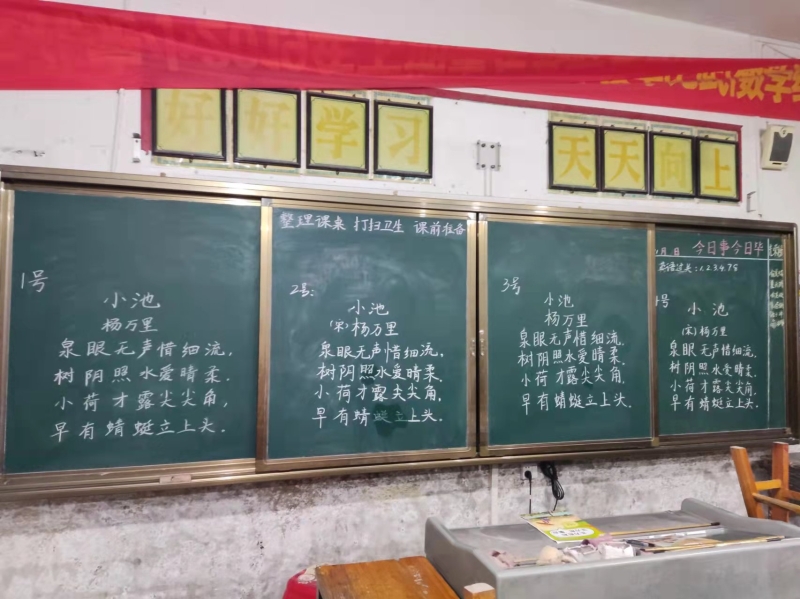 好好学习
天天向上
1号
小池
杨万里
泉眼无声惜细流，
树阴照水爱晴柔．
小荷才露尖尖角，
早有蜻蜓立上头．
整理课桌 打扫卫生 课前准备
2号：
小池
(宋)杨万里
泉眼无声惜细流，
树阴照水爱晴柔．
小荷才露尖尖角，
早有蜻蜓立上头．
3号
小池
杨万里
泉眼无声惜细流．
树阴照水爱晴柔．
小荷才露尖尖角．
早有蜻蜓立上头．
月 日 今日事今日毕
英语过关：1.2.3.4.7.5
号
小池
(宋)杨万里
泉眼无声惜细流．
树阴照水爱晴柔．
小荷才露尖尖角．
早有蜻蜓立上头．